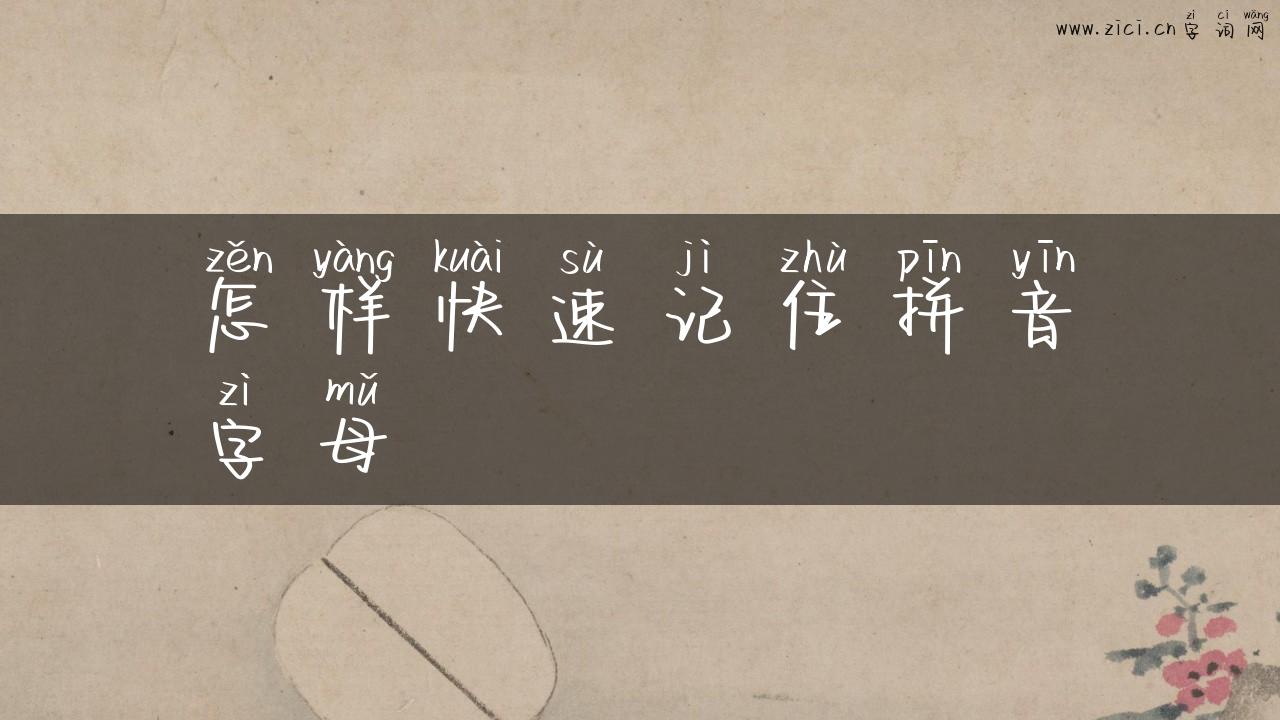 zì cí wǎng
www.zici.cn字词网
zěn yàng kuài sù jì zhù pīn yīn
怎样快速记住拼音
zì mǔ
字母